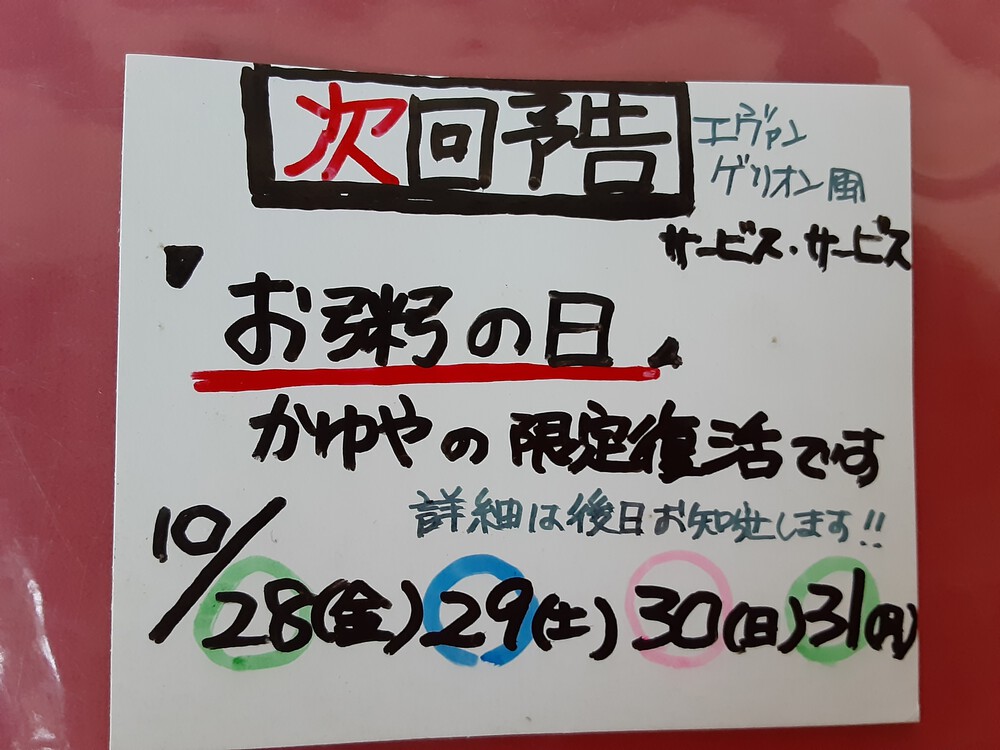 次回予告
エヴァン
ゲリオン風
サービス・サービス
「お粥の日」
かゆやの限定復活です
詳細は後日お知らせします!!
10/28(金)29(土)30(日)31(月)